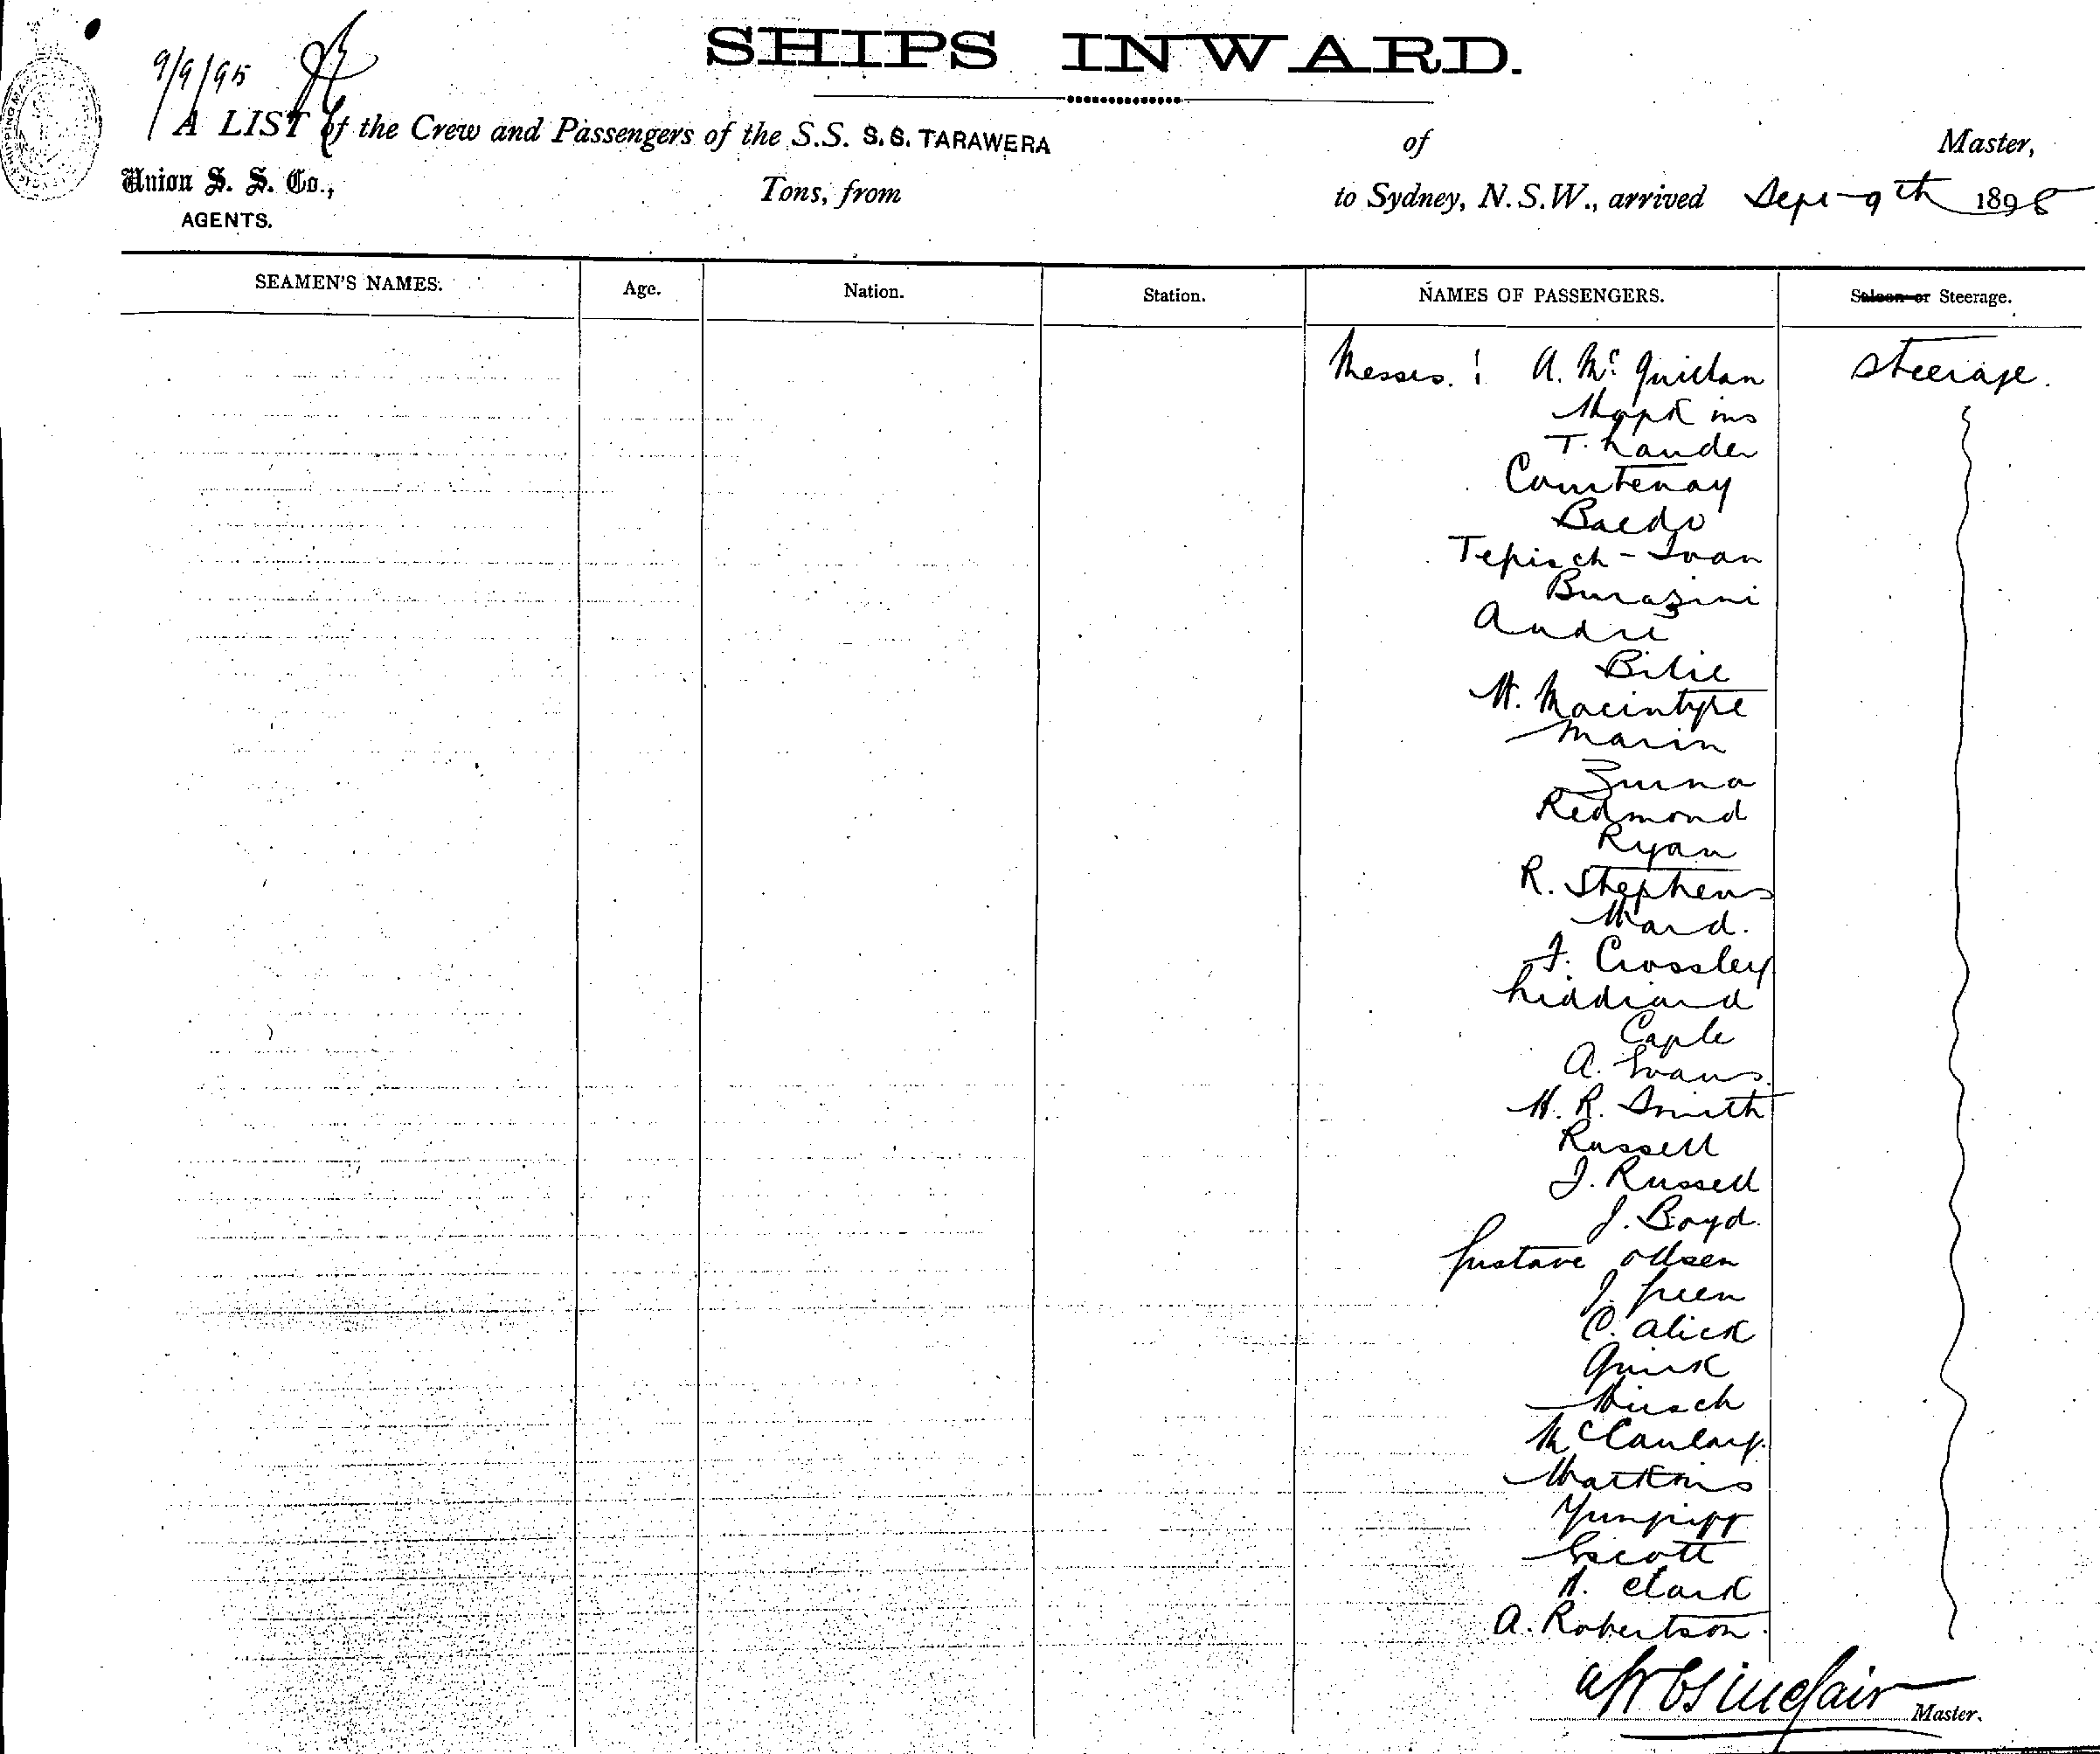 SHIPS INWARD.
9/9/95
A LIST of the Crew and Passengers of the S.S. S.S. TARAWERA of Master,
Union S. S. Co., Tons, from to Sydney, N.S.W., arrived Sept 9th 1895
AGENTS.
SEAMEN'S NAMES. Age. Nation. Station. NAMES OF PASSENGERS. Saloon or Steerage.
Messrs. : A. Mc Quillan Steerage.
Hopkins
T. Lauder
Courtenay
Baedo
Tepisch - Ivan
Burazini
Andre
Bilie
H. Macintyre
Marin
Zurna
Redmond
Ryan
R. Stephens
Ward.
F. Crossley
Liddiard
Caple
A. Evans.
H. R. Smith
Russell
J. Russell
J. Boyd.
Gustave Ollsen
J. Green
C. Alick
Quirk
Hirsch
McCaulay.
Watkins
Escott
Clark
A. Robertson.
Sinclair Master.